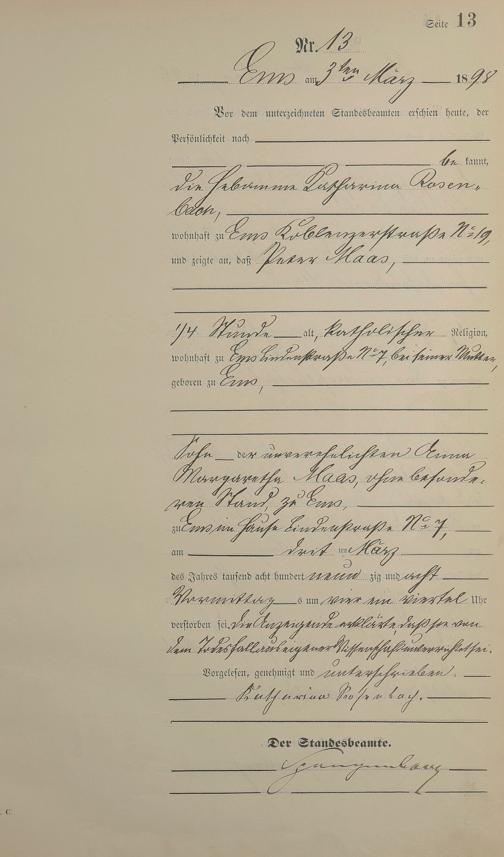 Seite 13
Nr. 13
Ems am 3ten März 1898
Vor dem unterzeichneten Standesbeamten erschien heute, der
Persönlichkeit nach
be kannt,
die Hebamme Katharina Rosen-
bach,
wohnhaft zu Ems Koblenzerstraße No 19,
und zeigte an, daß Peter Maas,
1/4 Stunde alt, katholischer Religion,
wohnhaft zu Ems Lindenstraße No 7, bei seiner Mutter,
geboren zu Ems,
Sohn der unverehelichten Anna
Margaretha Maas, ohne besonde-
ren Stand, zu Ems,
zu Ems im Hause Lindenstraße No 7,
am dritten März
des Jahres tausend acht hundert neun zig und acht
Vormittags um vier ein viertel Uhr
verstorben sei, die Anzeigende erklärte, daß sie von
dem Todesfall aus eigener Wissenschaft unterrichtet sei.
Vorgelesen, genehmigt und unterschrieben.
Katharina Rosenbach.
Der Standesbeamte.
Spangenberg
C